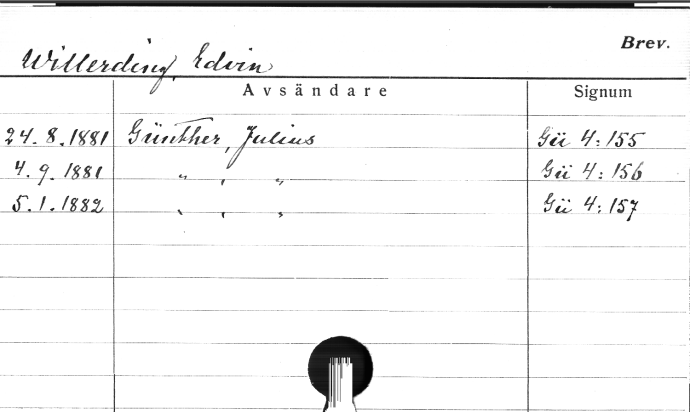 Brev.
Willerding, Edvin
Avsändare Signum
24.8.1881 Günther, Julius Gü 4:155
4.9.1881 " , " Gü 4:156
5.1.1882 " , " Gü 4:157